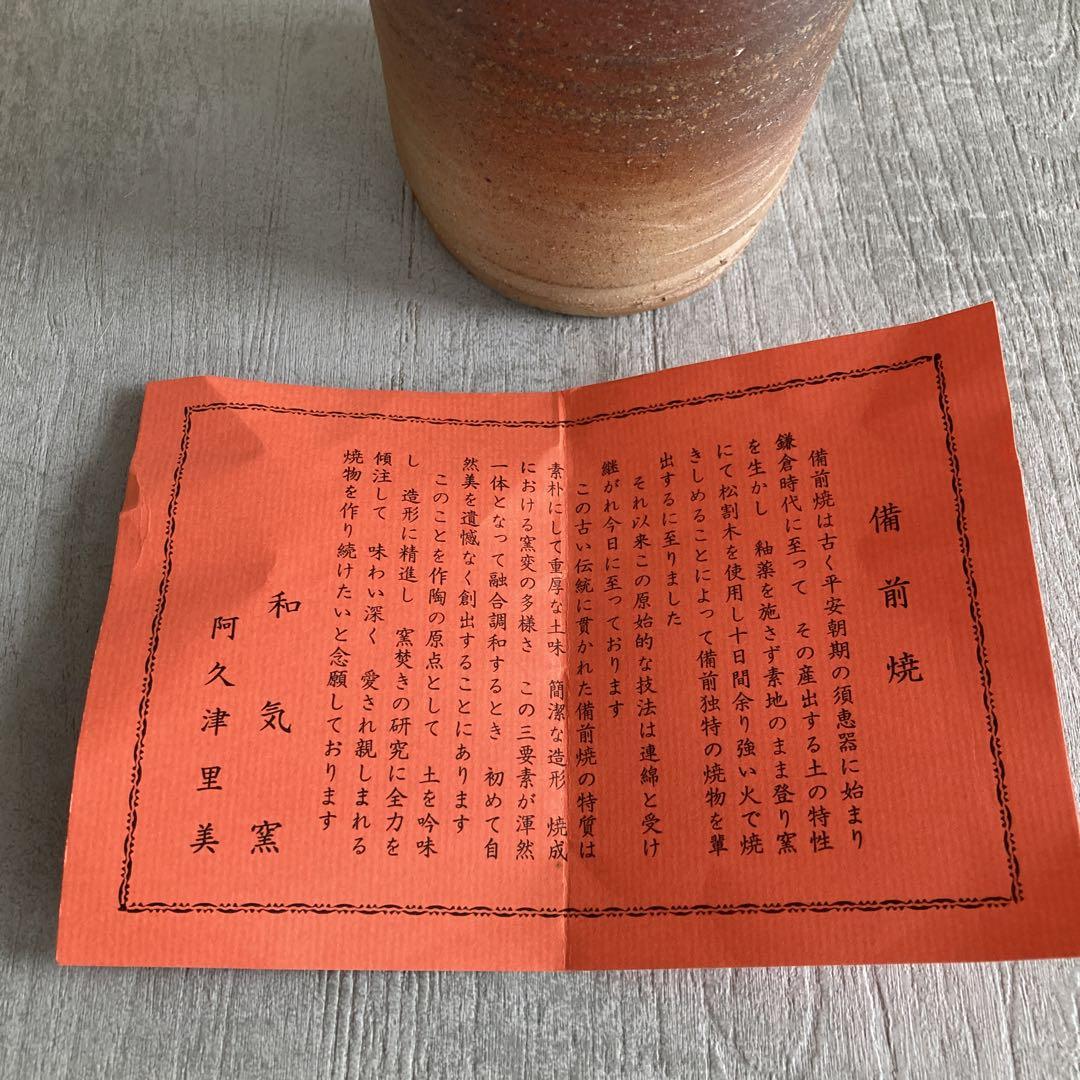 備前焼
備前焼は古く平安朝期の須恵器に始まり
鎌倉時代に至って　その産出する土の特性
を生かし　釉薬を施さず素地のまま登り窯
にて松割木を使用し十日間余り強い火で焼
きしめることによって備前独特の焼物を輩
出するに至りました
それ以来この原始的な技法は連綿と受け
継がれ今日に至っております
この古い伝統に貫かれた備前焼の特質は
素朴にして重厚な土味　簡潔な造形　焼成
における窯変の多様さ　この三要素が渾然
一体となって融合調和するとき　初めて自
然美を遺憾なく創出することにあります
このことを作陶の原点として　土を吟味
し　造形に精進し　窯焚きの研究に全力を
傾注して　味わい深く　愛され親しまれる
焼物を作り続けたいと念願しております
和気窯
阿久津里美